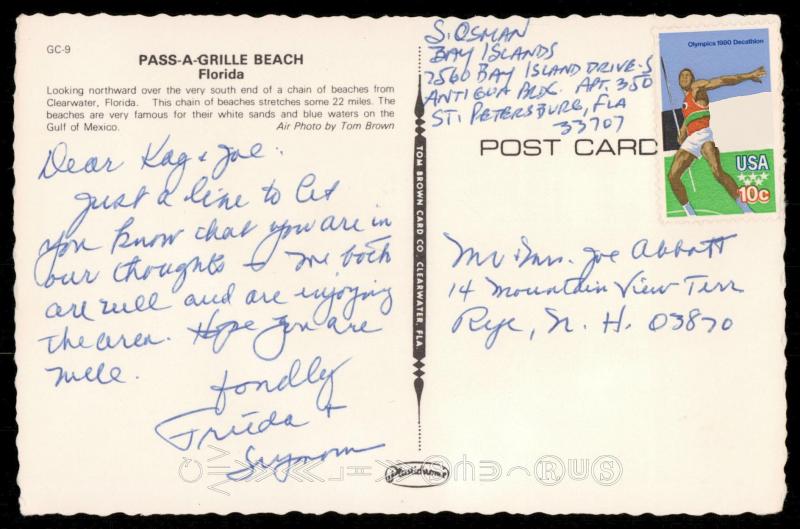 GC-9
PASS-A-GRILLE BEACH
Florida
Looking northward over the very south end of a chain of beaches from
Clearwater, Florida. This chain of beaches stretches some 22 miles. The
beaches are very famous for their white sands and blue waters on the
Gulf of Mexico. Air Photo by Tom Brown
Dear Kay & Joe.
Just a line to let
you know that you are in
our thoughts - We both
are well and are enjoying
the area. Hope you are
well.
Fondly
Frieda +
Seymour
TOM BROWN CARD CO., CLEARWATER, FLA.
S. OSMAN
BAY ISLANDS
7560 BAY ISLAND DRIVE-S
ANTIGUA BLDG. APT. 350
ST. PETERSBURG, FLA
33707
POST CARD
Olympics 1980 Decathlon
USA
10c
Mr & Mrs. Joe Abbott
14 Mountain View Terr
Rye, N. H. 03870
Plastichrome